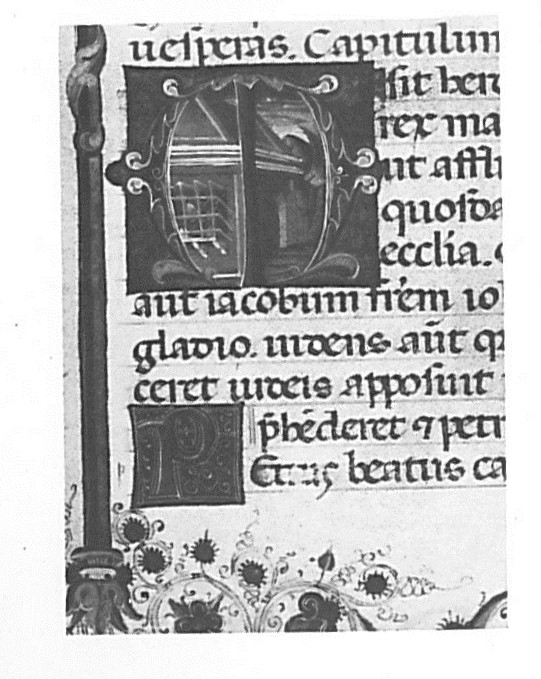 uesperas. Capitulum
M isit hero
rex ma
ut affli
quosda
ecclia.
aūt iacobum frēm io
gladio. uidens aūt q
ceret iudeis apposuit
P p̄hēderet ⁊ petr
Etrus beatus ca